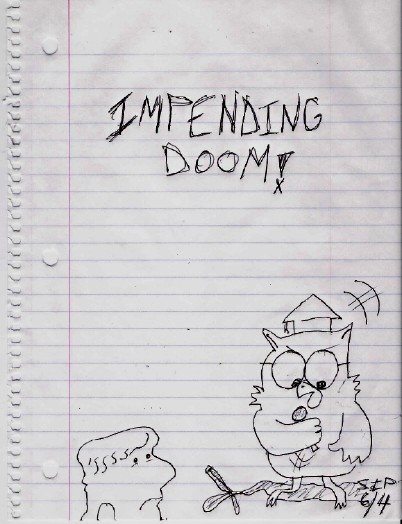 IMPENDING
DOOM!
SIP
6/4